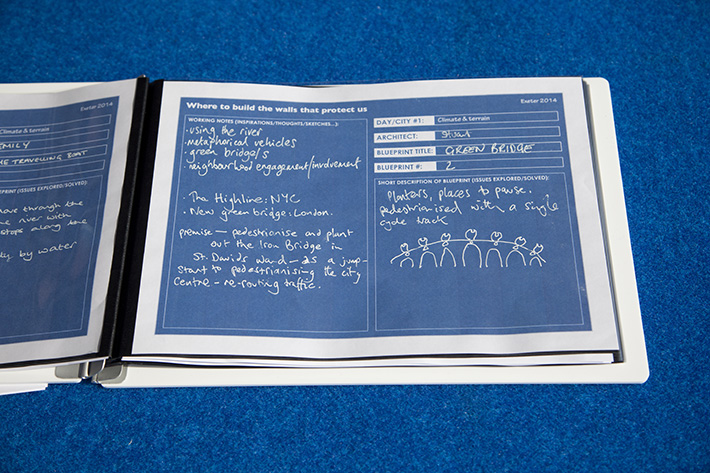 Exeter 2014
Climate & terrain
EMILY
THE TRAVELLING BOAT
PRINT (ISSUES EXPLORED/SOLVED):
ove through the
e river with
stops along the
dy by water
Where to build the walls that protect us
Exeter 2014
WORKING NOTES (INSPIRATIONS/THOUGHTS/SKETCHES...):
· using the river
· metaphorical vehicles
· green bridge/s
· neighbourhood engagement/involvement
· The Highline: NYC
· New green bridge: London.
premise – pedestrianise and plant
out the Iron Bridge in
St. Davids Ward – as a jump-
start to pedestrianising the city
Centre – re-routing traffic.
DAY/CITY #1: Climate & terrain
ARCHITECT: Stuart
BLUEPRINT TITLE: GREEN BRIDGE
BLUEPRINT #: 2
SHORT DESCRIPTION OF BLUEPRINT (ISSUES EXPLORED/SOLVED):
Planters, places to pause,
pedestrianised with a single
cycle track